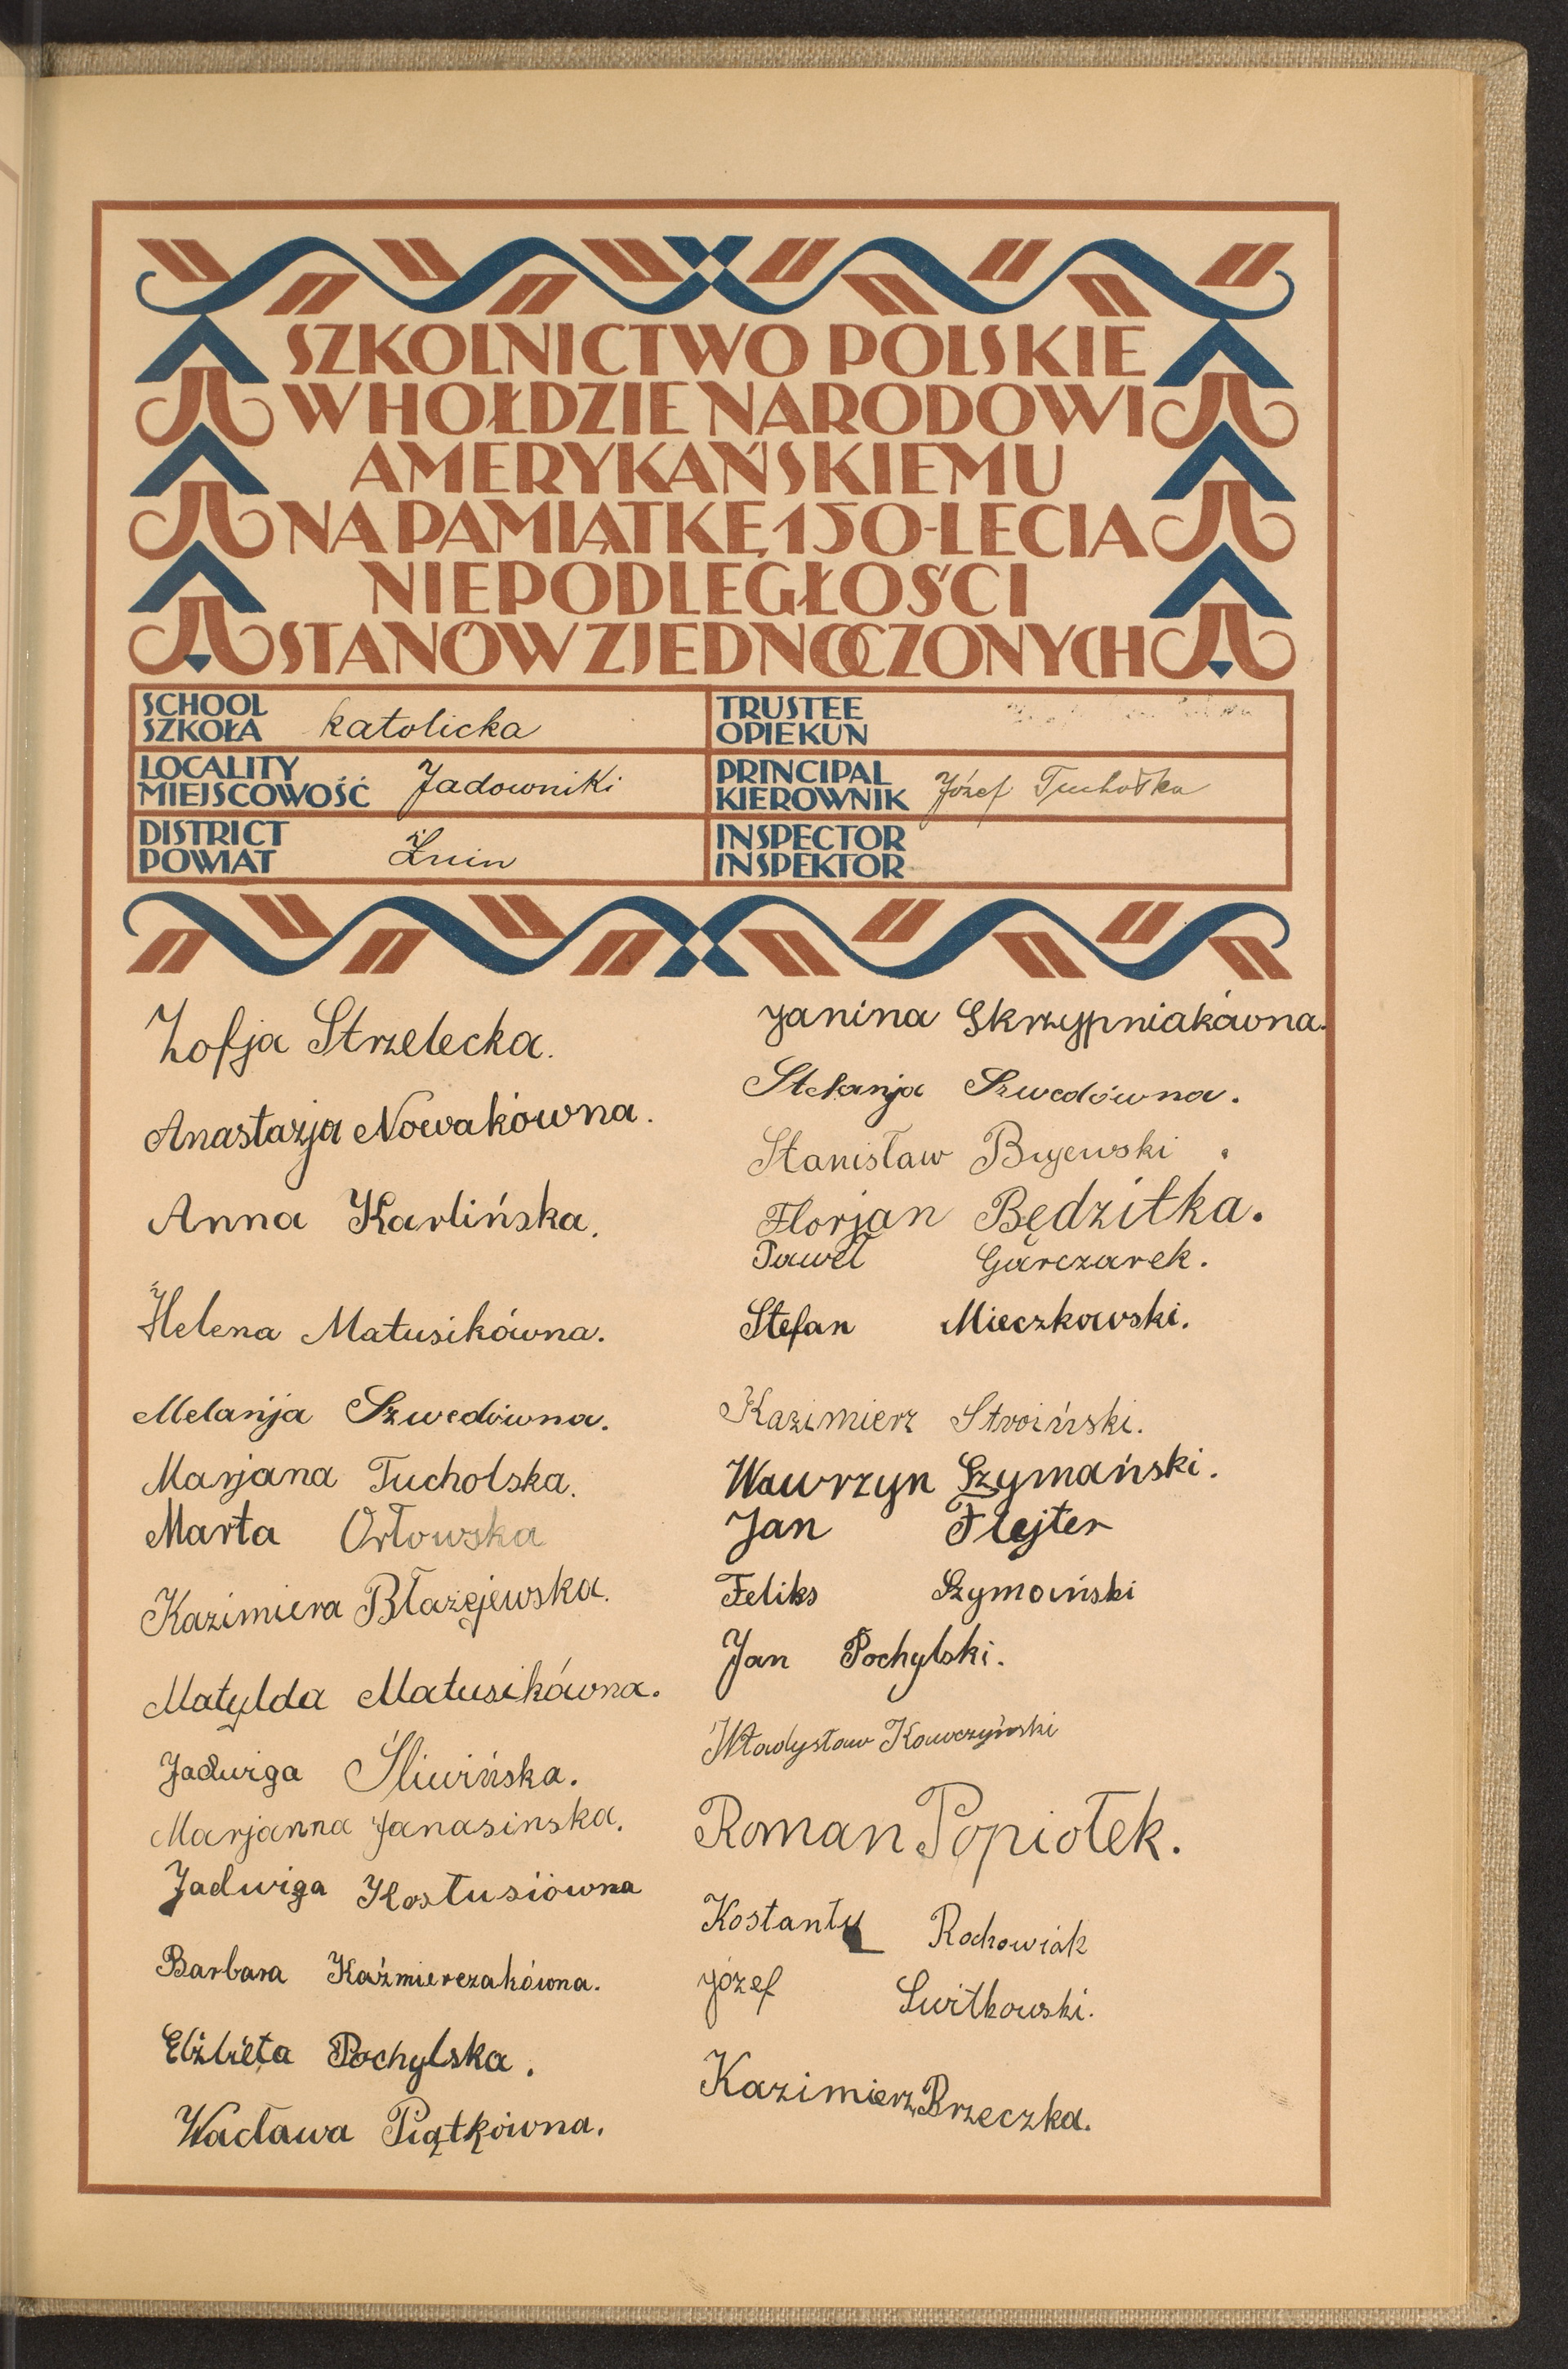 SZKOLNICTWO POLSKIE
W HOŁDZIE NARODOWI
AMERYKAŃSKIEMU
NA PAMIĄTKĘ 150-LECIA
NIEPODLEGŁOŚCI
STANÓW ZJEDNOCZONYCH
SCHOOL
SZKOŁA katolicka
TRUSTEE
OPIEKUN
LOCALITY
MIEJSCOWOŚĆ Jadowniki
PRINCIPAL
KIEROWNIK Józef Tuchołka
DISTRICT
POWIAT Żnin
INSPECTOR
INSPEKTOR
Zofja Strzelecka.
Anastazja Nowakówna.
Anna Karlińska.
Helena Matusikówna.
Melanja Szwedówna.
Marjana Tucholska.
Marta Orłowska
Kazimiera Błażejewska.
Matylda Matusikówna.
Jadwiga Śliwińska.
Marjanna Janasinska.
Jadwiga Kostusiówna
Barbara Kaźmierczakówna.
Elżbieta Pochylska.
Wacława Piątkówna.
Janina Skrzypniakówna.
Stefanja Szwedówna.
Stanisław Bujewski.
Florjan Będzitka.
Paweł Garczarek.
Stefan Mieczkowski.
Kazimierz Stroiński.
Wawrzyn Szymański.
Jan Flejter
Feliks Szymański
Jan Pochylski.
Władysław Kawczyński
Roman Popiołek.
Kostanty Rochowiak
Józef Switkowski.
Kazimierz Brzeczka.